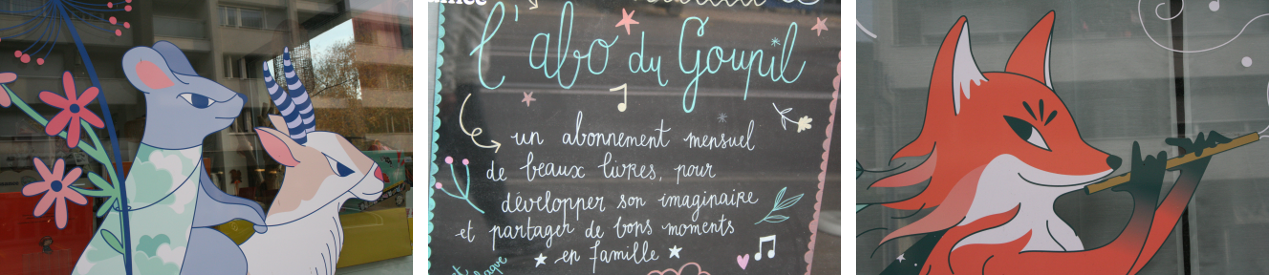 l'abo du Goupil
un abonnement mensuel
de beaux livres, pour
développer son imaginaire
et partager de bons moments
en famille